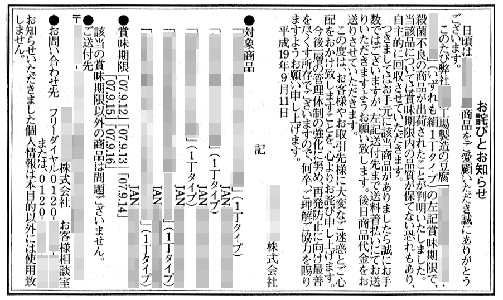 お詫びとお知らせ
日頃は
商品をご愛顧いただき誠にありがとう
ございます。
このたび弊社
工場製造の豆腐
いずれも絹1丁タイプ)の左記賞味期限で、
殺菌不良の商品が出荷されたことが判明いたしました。
当該品については賞味期限内の品質が保てない恐れもあり、
自主的に回収させていただきます。
つきましてはお手元に該当商品がありましたら誠にお手
数ではございますが、左記送付先まで送料着払いにてお送
りいただきますようお願い致します。後日商品代金をお
送りさせていただきます。
この度は、お客様やお取引先様に大変なご迷惑とご心
配をおかけ致しますことを、心よりお詫び申し上げます。
今後一層の管理体制の強化に努め、再発防止に向け最善
を尽くす所存でございますので、何卒、ご理解ご協力を賜り
ますようお願い申し上げます。
平成19年9月11日
株式会社
記
●対象商品
(1丁タイプ)
JAN
(1丁タイプ)
JAN
(1丁タイプ)
JAN
(1丁タイプ)
JAN
(1丁タイプ)
JAN
●賞味期限
「07.9.12」「07.9.13」「07.9.14」
「07.9.15」「07.9.16」
●該当の賞味期限以外の商品は問題ございません。
●ご送付先
〒
株式会社
お客様相談室
●お問い合わせ先
フリーダイヤル0120-
または、0120-
お知らせいただきました個人情報は本目的以外には使用致
しません。